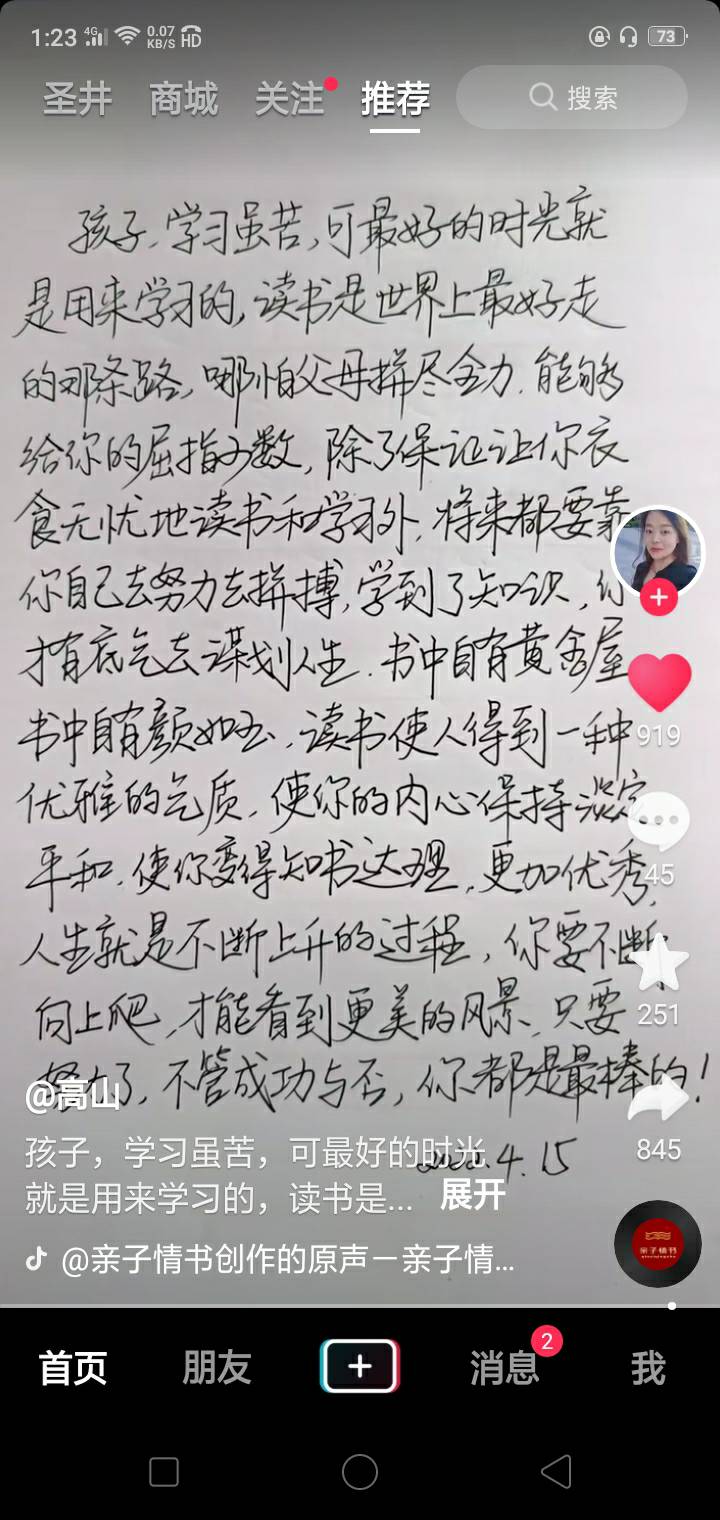 1:23 4G 0.07 KB/S HD 73
圣井 商城 关注 推荐 搜索
孩子，学习虽苦，可最好的时光就
是用来学习的，读书是世界上最好走
的那条路，哪怕父母拼尽全力，能够
给你的屈指可数，除了保证让你衣
食无忧地读书和学习外，将来都要靠
你自己去努力去拼搏，学到了知识，你
才有底气去谋划人生．书中自有黄金屋
书中自有颜如玉，读书使人得到一种
优雅的气质，使你的内心保持淡定
平和，使你变得知书达理，更加优秀，
人生就是不断上升的过程，你要不断
向上爬，才能看到更美的风景，只要
努力了，不管成功与否，你都是最棒的！
4.15
919
45
251
845
@高山
孩子，学习虽苦，可最好的时光
就是用来学习的，读书是... 展开
@亲子情书创作的原声－亲子情...
亲子情书
首页 朋友 消息 2 我